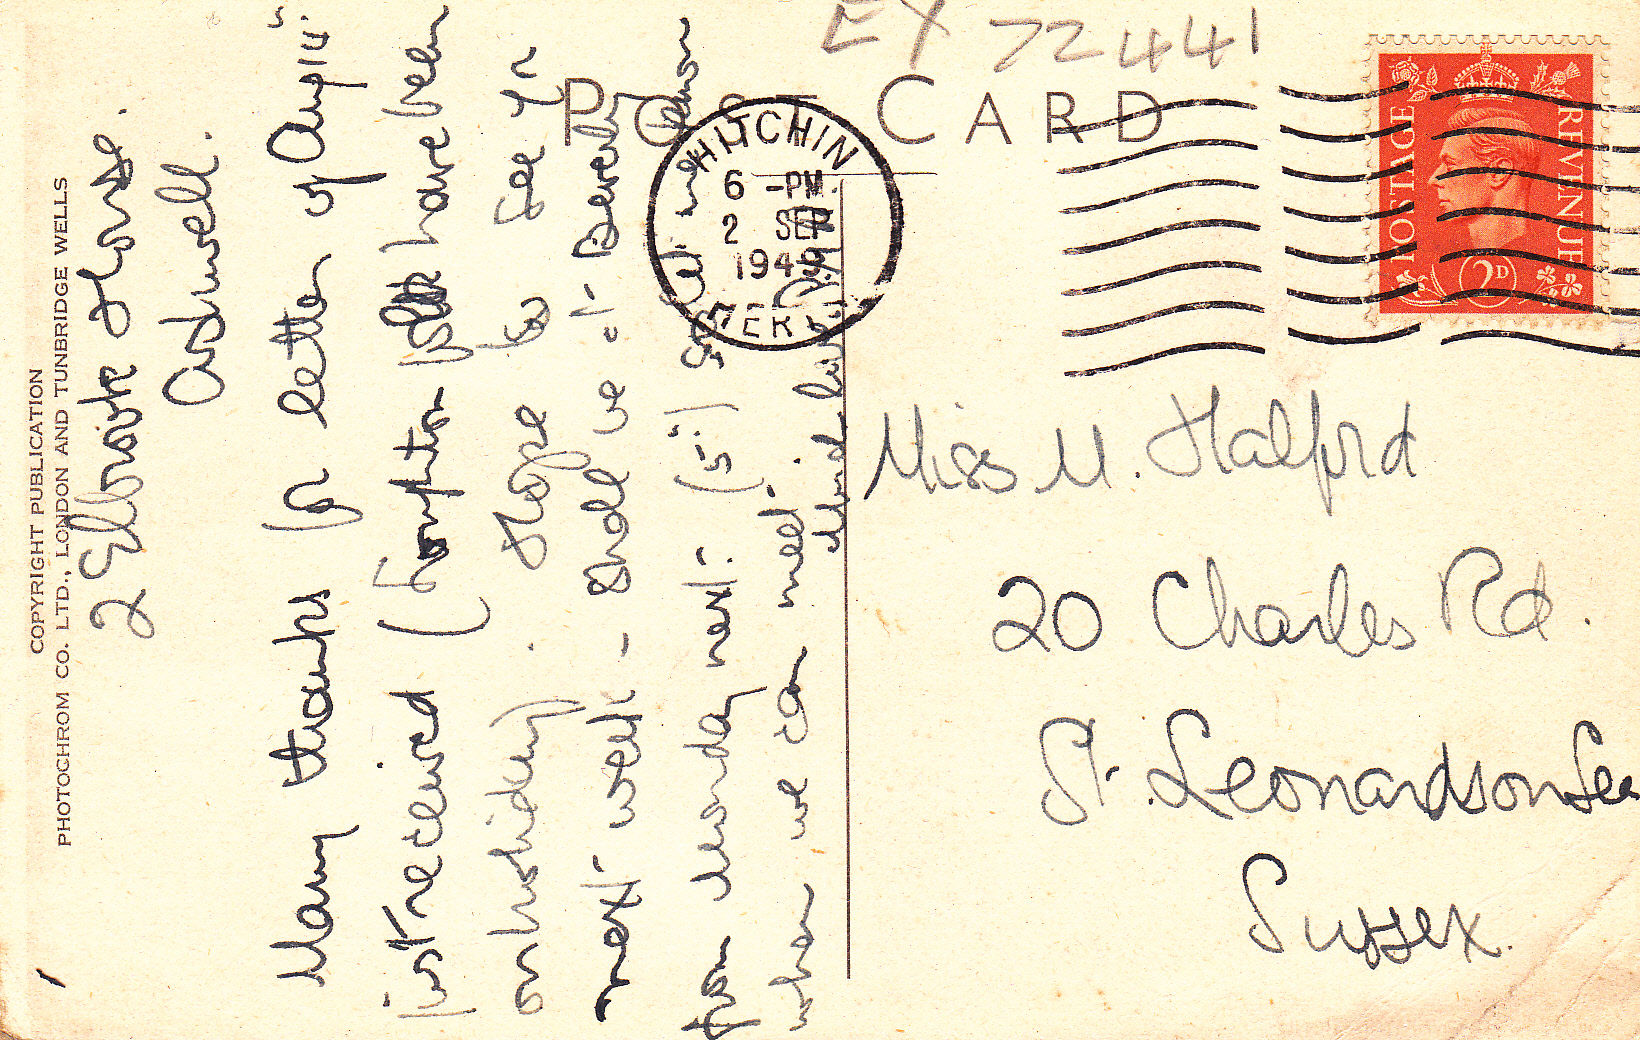 EX 72441
POST CARD
COPYRIGHT PUBLICATION
PHOTOCHROM CO. LTD., LONDON AND TUNBRIDGE WELLS
HITCHIN
6 -PM.
2 SEP
194
HERTS
POSTAGE
REVENUE
2D
2 House.
Many thanks for letter of Aug 14".
just received ( have been
on holiday). Hope to see yr
next week - Shall be at
from Monday next. (5".) So let me know
when we can meet.
Miss M. Halford
20 Charles Rd.
St. Leonardson Sea
Sussex.